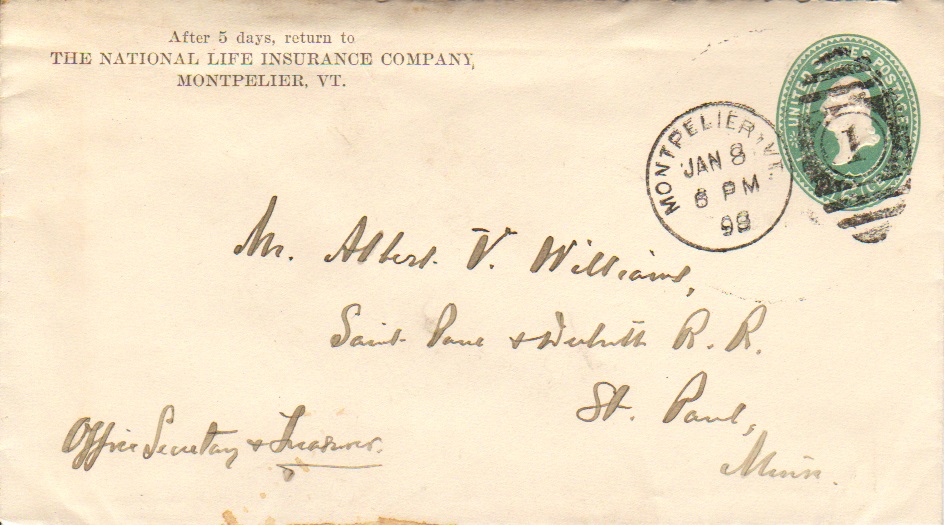 After 5 days, return to
THE NATIONAL LIFE INSURANCE COMPANY,
MONTPELIER, VT.
UNITED STATES POSTAGE
MONTPELIER, VT.
JAN 8
6 PM
98
1
Mr. Albert V. Williams,
Saint Paul & Duluth R. R.
St. Paul,
Minn.
Office Secretary & Treasurer.